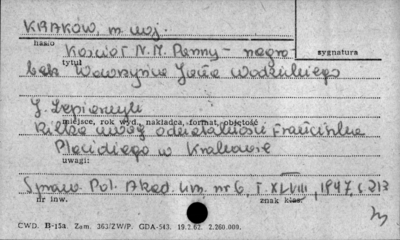 KRAKÓW, m. woj.
hasło
Kościół N.M. Panny - nagro-
sygnatura
tytuł
bek Wawrzyńca Jana Wodzickiego
J. Lepiarczyk
miejsce, rok wyd., nakładca, format, objętość
Kilka uwag o działalności Franciszka
Placidiego w Krakowie
uwagi:
Spraw. Pol. Akad. Um. nr 6, T. XLVIII, 1947, s. 213
nr inw.
znak klas.
CWD. II-15a. Zam. 363/ZW/P. GDA-543. 19.2.62. 2.260.000.